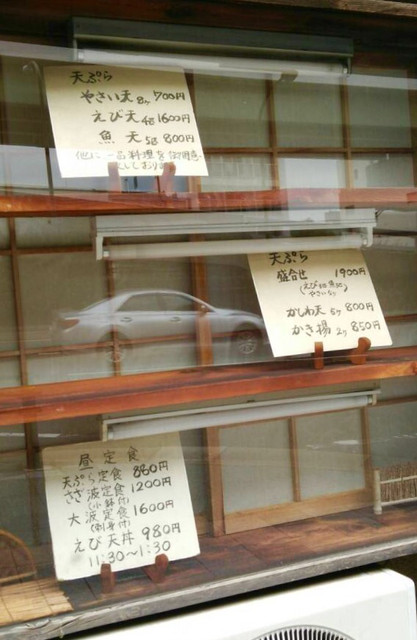 天ぷら
やさい天 8ヶ 700円
えび天 4匹 1600円
魚天 5匹 800円
他に一品料理を御用意
いたしております
天ぷら
盛合せ 1900円
(えび 魚
やさい
かしわ天 5ヶ 800円
かき揚 2ヶ 850円
昼定食
天ぷら定食 880円
さざ波定食 1200円
(小鉢付)
大波定食 1600円
(刺身付)
えび天丼 980円
11:30～1:30